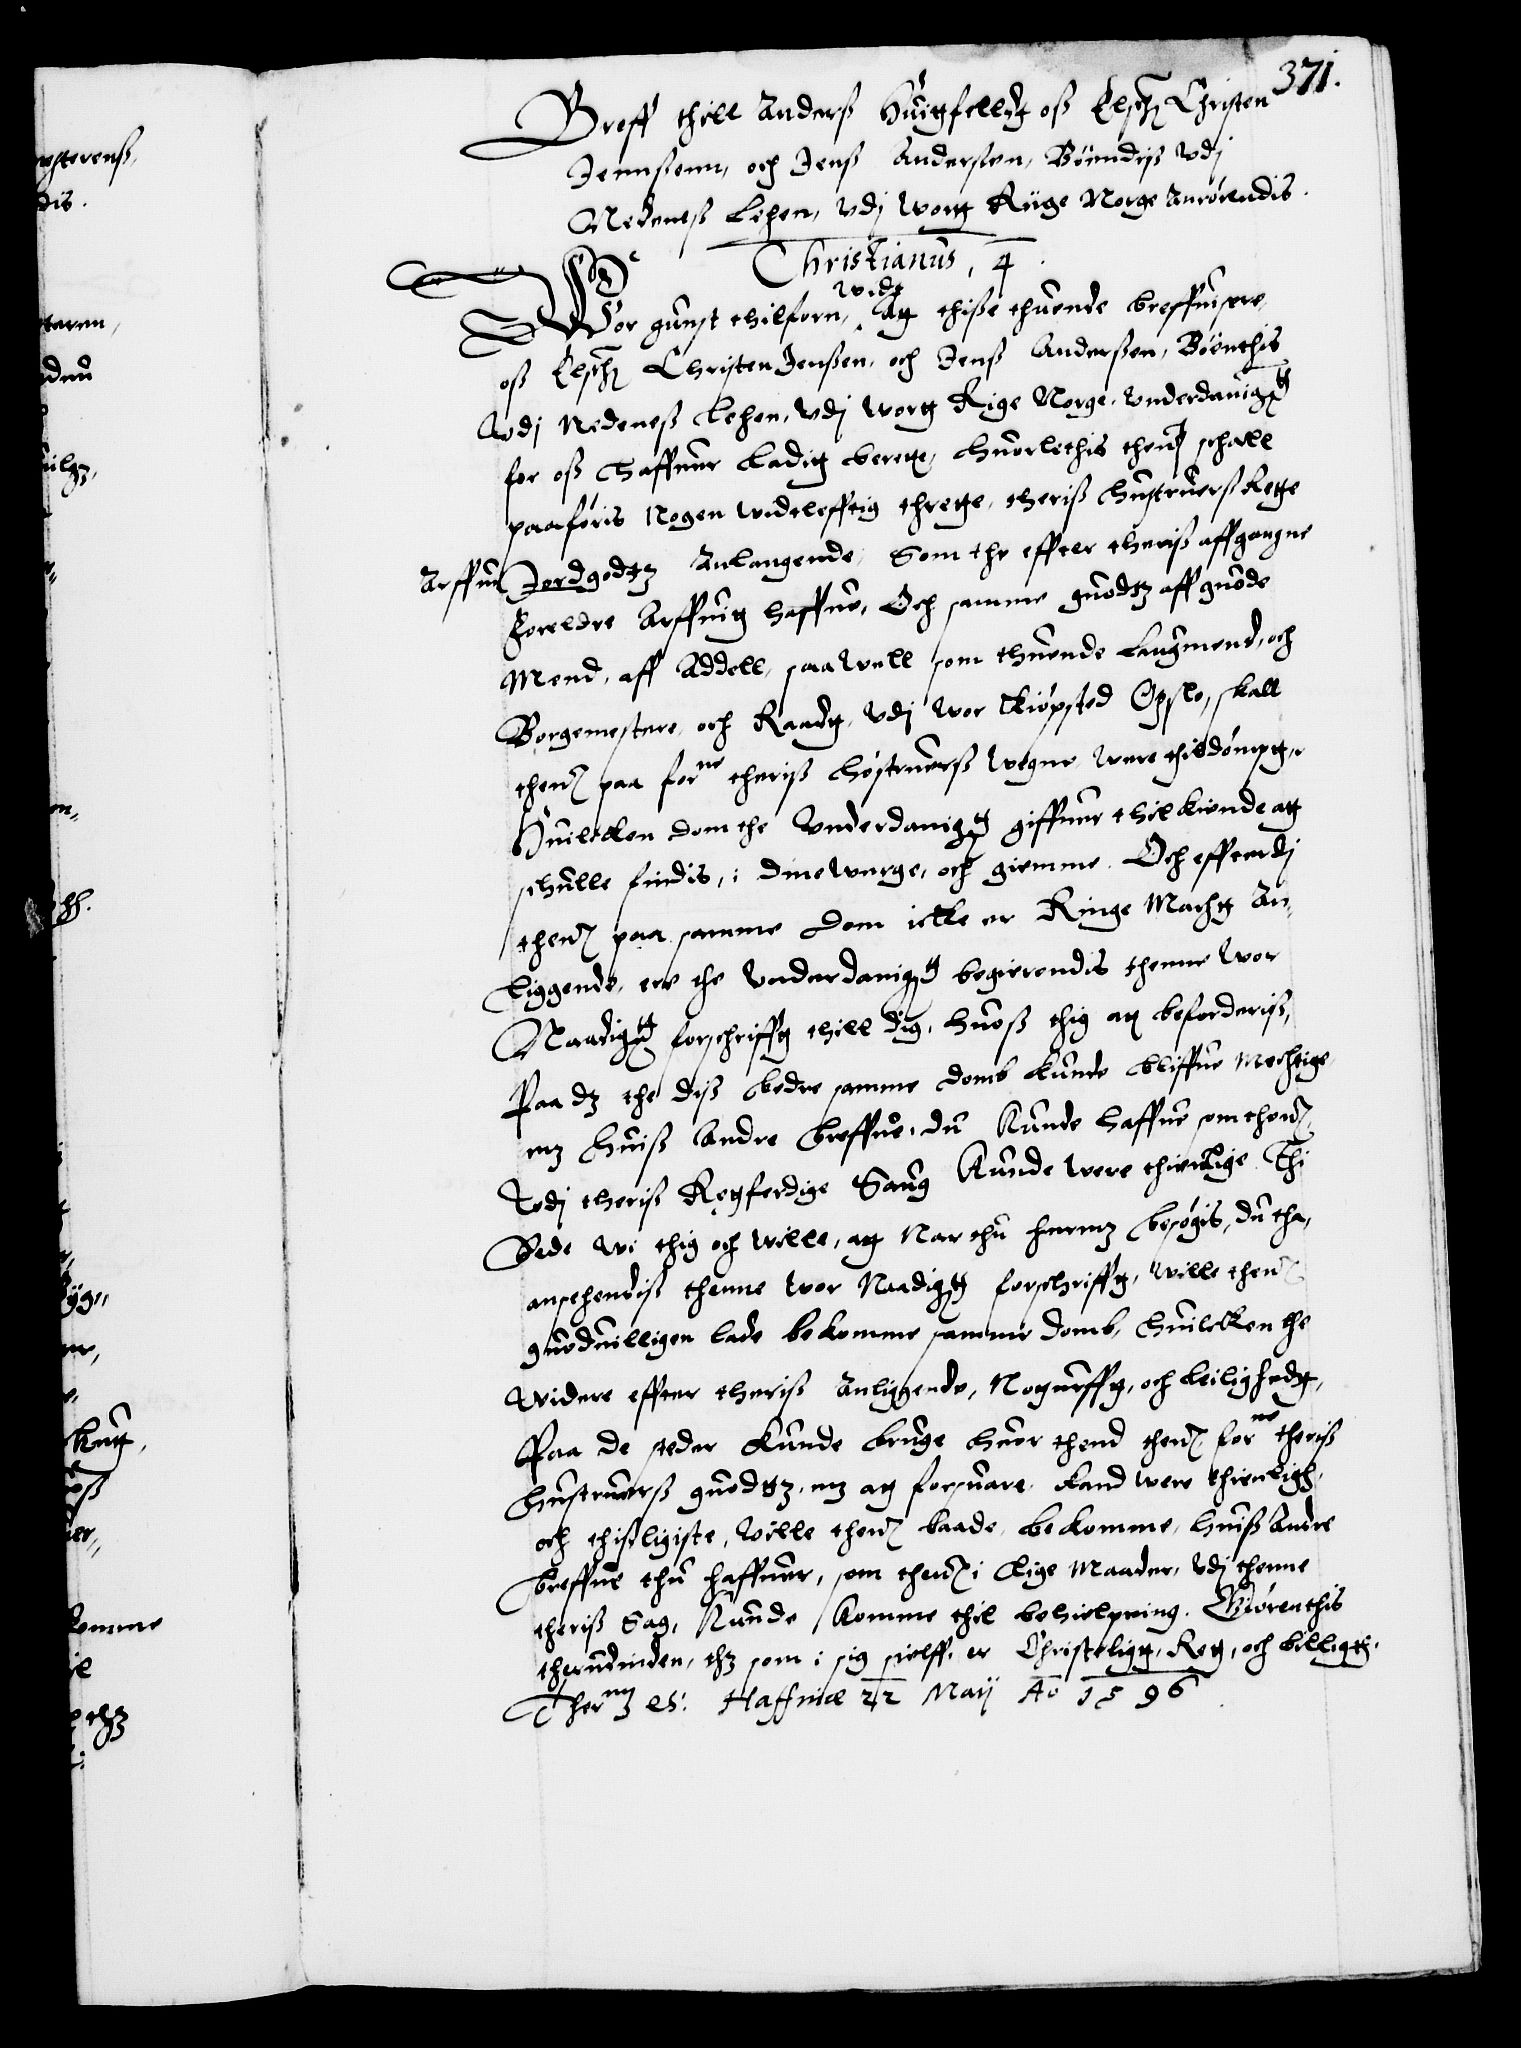 371.
Breff thill Anders Huitfelldt oß Elsch: Christen
Jennßenn, och Jens Anderßen, Böendis udj
Nedenes Lehen, udj wortt Riige Norge Anrörendis.
Christianus, 4.
Wor gunst thilforn, widt Att thiße thuende breffuisere
oß Elsch: Christen Jenßen, och Jens Anderßen, Böenthis
udj Nedenes Lehen, udj wortt Rige Norge, underdanigst
for oß haffuer ladit berette, huorlethis thenom schall
paaföris nogen widtlefftig thrette, theris hustruers Rette
Arffue Jordgodtz anlangende, Som the effter theris affgangne
Foreldre Arffuit haffue, Och samme guodtz aff guode
Mend, aff Addell, saa well som thuende Laugmend, och
Borgemestere, och Raadt, udj wor Kiöpsted Opslo, skall
thenom paa forne theris höstruers wegne were thildömpt,
Huilcken dom the underdanigst giffuer thilkiende att
schulle findis, i dine werge, och giemme. Och effterdj
thenom paa samme dom icke er Ringe Macht an-
liggende, ere the underdanigst begierendis thenne wor
Naadigst forschrifft thill dig, huoß thig att befordris,
Paa dz the diß bedre samme domb kunde bliffue Mechtige,
mz huis Andre breffue, du kunde haffue som thenom
udj theris Rettferdige Saug kunde were thienlige. Thi
Bede wi thig och wille, att Nar thu hermz besögis, du tha,
ansehendis thenne wor Naadigst forschrifft, wille thenom
guoduilligen lade bekomme samme domb, huilcken the
widere effter theris anliggende, Notturfft, och leilighedt,
Paa de steder kunde bruge huor thend thenom forne theris
hustruers guodtz, mz att forsuare, kand were thienligh,
och thißligiste, wille thenom baade bekomme, huis Andre
breffue thu haffuer, som thenom i lige Maader, udj thenne
theris Sag, kunde komme thil behielpning. Giörenthis
therudinden, thz som i sig sielff er Christeligt, Rett, och billigth.
Thermz etc: Haffniæ 22 Maij Ao 1596.